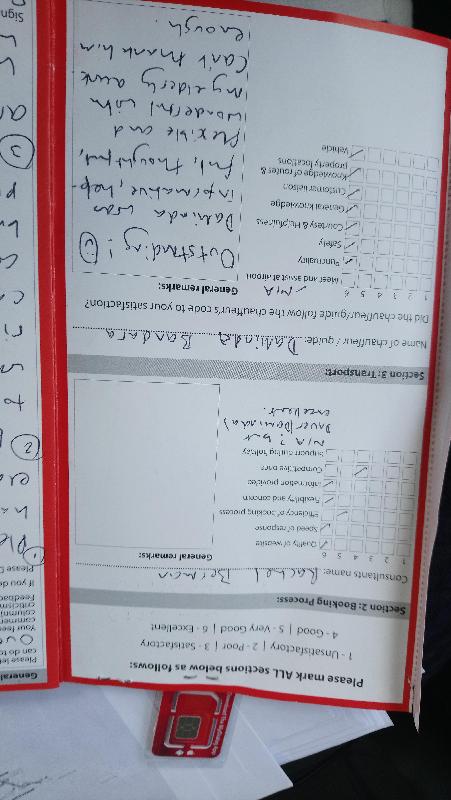 Please mark ALL sections below as follows:
1 - Unsatisfactory | 2 - Poor | 3 - Satisfactory
4 - Good | 5 - Very Good | 6 - Excellent
Section 2: Booking Process:
Consultants name: Rachel
1 2 3 4 5 6
General remarks:
Quality of website
Speed of response
Efficiency of booking process
Flexibility and concern
Information provided
Competitive price
Support during tol/way
N/A ? but
Driver (Daminda)
excellent.
Section 3: Transport:
Name of chauffeur / guide: Daminda Bandara
Did the chauffeur guide/chauffeur follow the chauffeur's code to your satisfaction?
1 2 3 4 5 6
N/A
General remarks:
Meet and assist at airport
Punctuality
Safety
Courtesy & Helpfulness
General knowledge
Customer liaison
Knowledge of routes &
property locations
Vehicle
Outstanding! 6
Daminda was
informative, help-
ful, thoughtful,
flexible and
wonderful with
my elderly aunt.
Can't thank him
enough.
General
Please let
can do to
Your feed
commen
column)
criticism
Feedback
If you do
Please
1
2
3
Sign